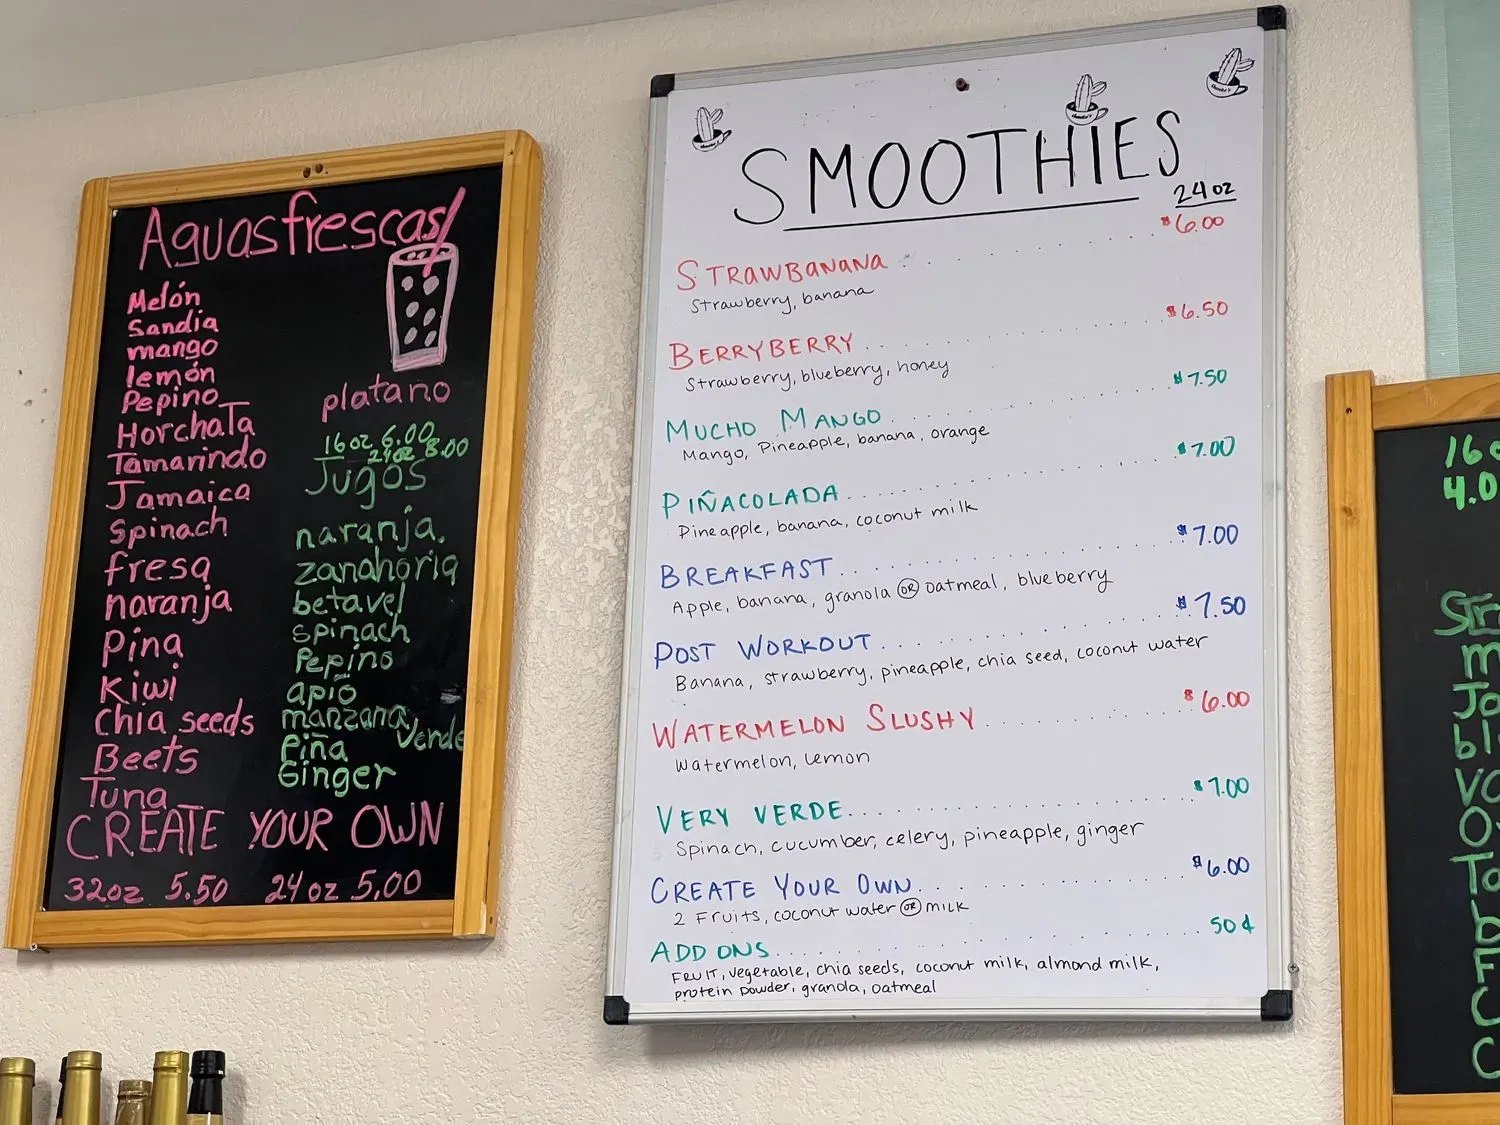 Aguas frescas
Melón
Sandia
mango
lemón
Pepino
Horchata
Tamarindo
Jamaica
Spinach
fresa
naranja
Pina
Kiwi
Chia seeds
Beets
Tuna
platano
16oz 6.00
24oz 8.00
Jugos
naranja.
zanahoria
betavel
spinach
Pepino
apio
manzana verde
Piña
Ginger
CREATE YOUR OWN
32oz 5.50 24oz 5.00
SMOOTHIES
24 oz
STRAWBANANA $6.00
Strawberry, banana
BERRYBERRY $6.50
Strawberry, blueberry, honey
MUCHO MANGO $7.50
Mango, Pineapple, banana, orange
PIÑACOLADA $7.00
Pineapple, banana, coconut milk
BREAKFAST $7.00
Apple, banana, granola OR oatmeal, blueberry
POST WORKOUT $7.50
Banana, strawberry, pineapple, chia seed, coconut water
WATERMELON SLUSHY $6.00
Watermelon, Lemon
VERY VERDE $7.00
Spinach, cucumber, celery, pineapple, ginger
CREATE YOUR OWN $6.00
2 Fruits, coconut water OR milk
ADD ONS 50¢
FRUIT, vegetable, chia seeds, coconut milk, almond milk,
protein powder, granola, oatmeal
16
4.0